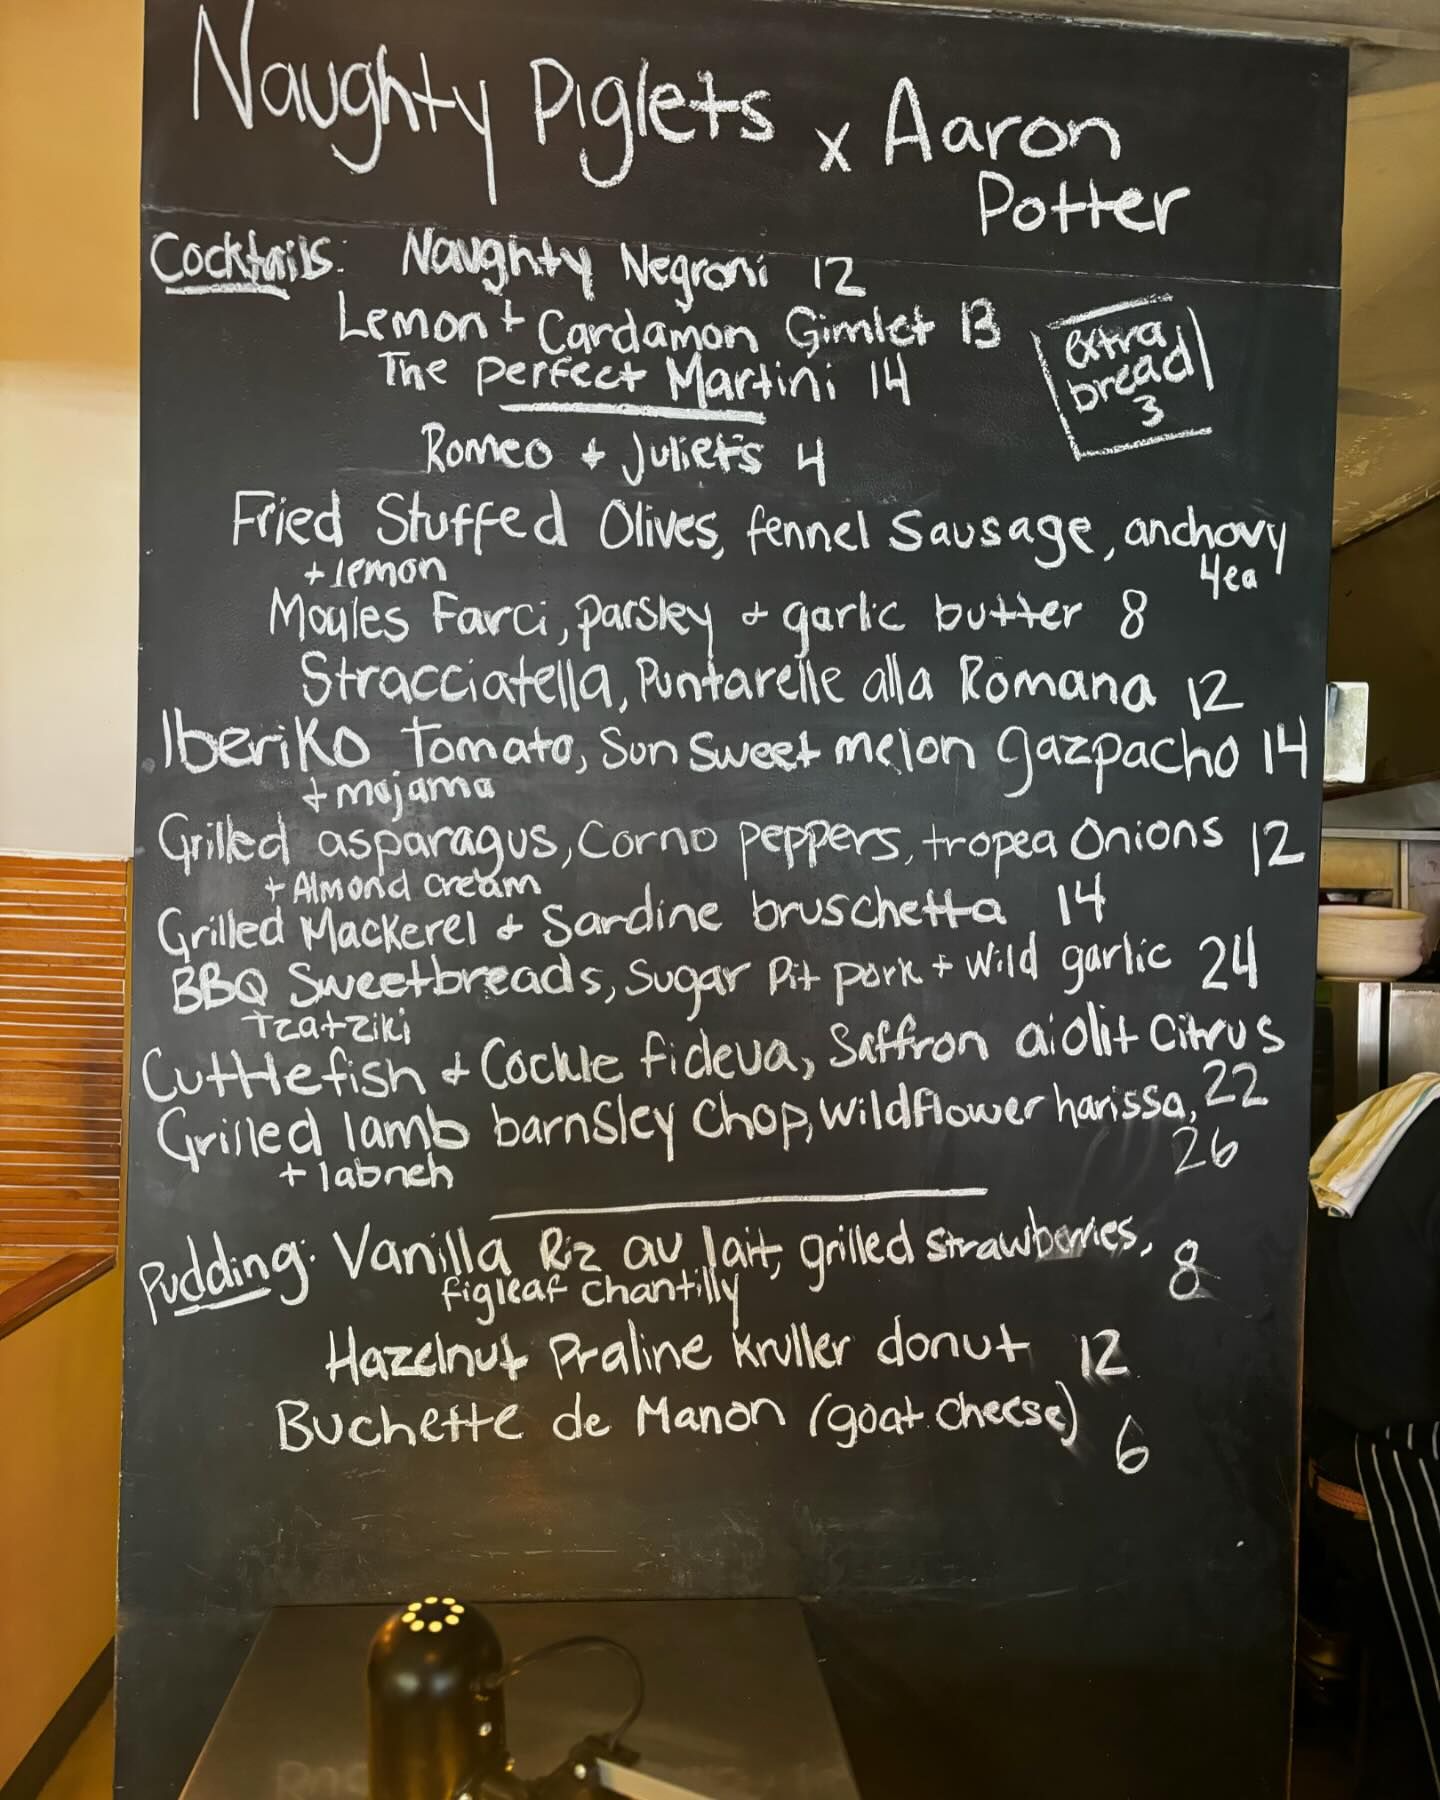 Naughty Piglets x Aaron
Potter
Cocktails: Naughty Negroni 12
Lemon + Cardamon Gimlet 13
The perfect Martini 14
extra
bread
3
Romeo + Juliet's 4
Fried Stuffed Olives, fennel Sausage, anchovy
+ lemon 4ea
Moules Farci, parsley + garlic butter 8
Stracciatella, Puntarelle alla Romana 12
Iberiko Tomato, Sun Sweet melon gazpacho 14
+ mojama
Grilled asparagus, Corno peppers, tropea Onions 12
+ Almond cream
Grilled Mackerel + Sardine bruschetta 14
BBQ Sweetbreads, Sugar Pit pork + Wild garlic 24
Tzatziki
Cuttlefish + Cockle fideua, Saffron aioli + Citrus
22
Grilled lamb barnsley Chop, wildflower harissa,
+ labneh 26
Pudding: Vanilla Riz au lait, grilled strawberries, 8
figleaf Chantilly
Hazelnut Praline kruller donut 12
Buchette de Manon (goat cheese) 6